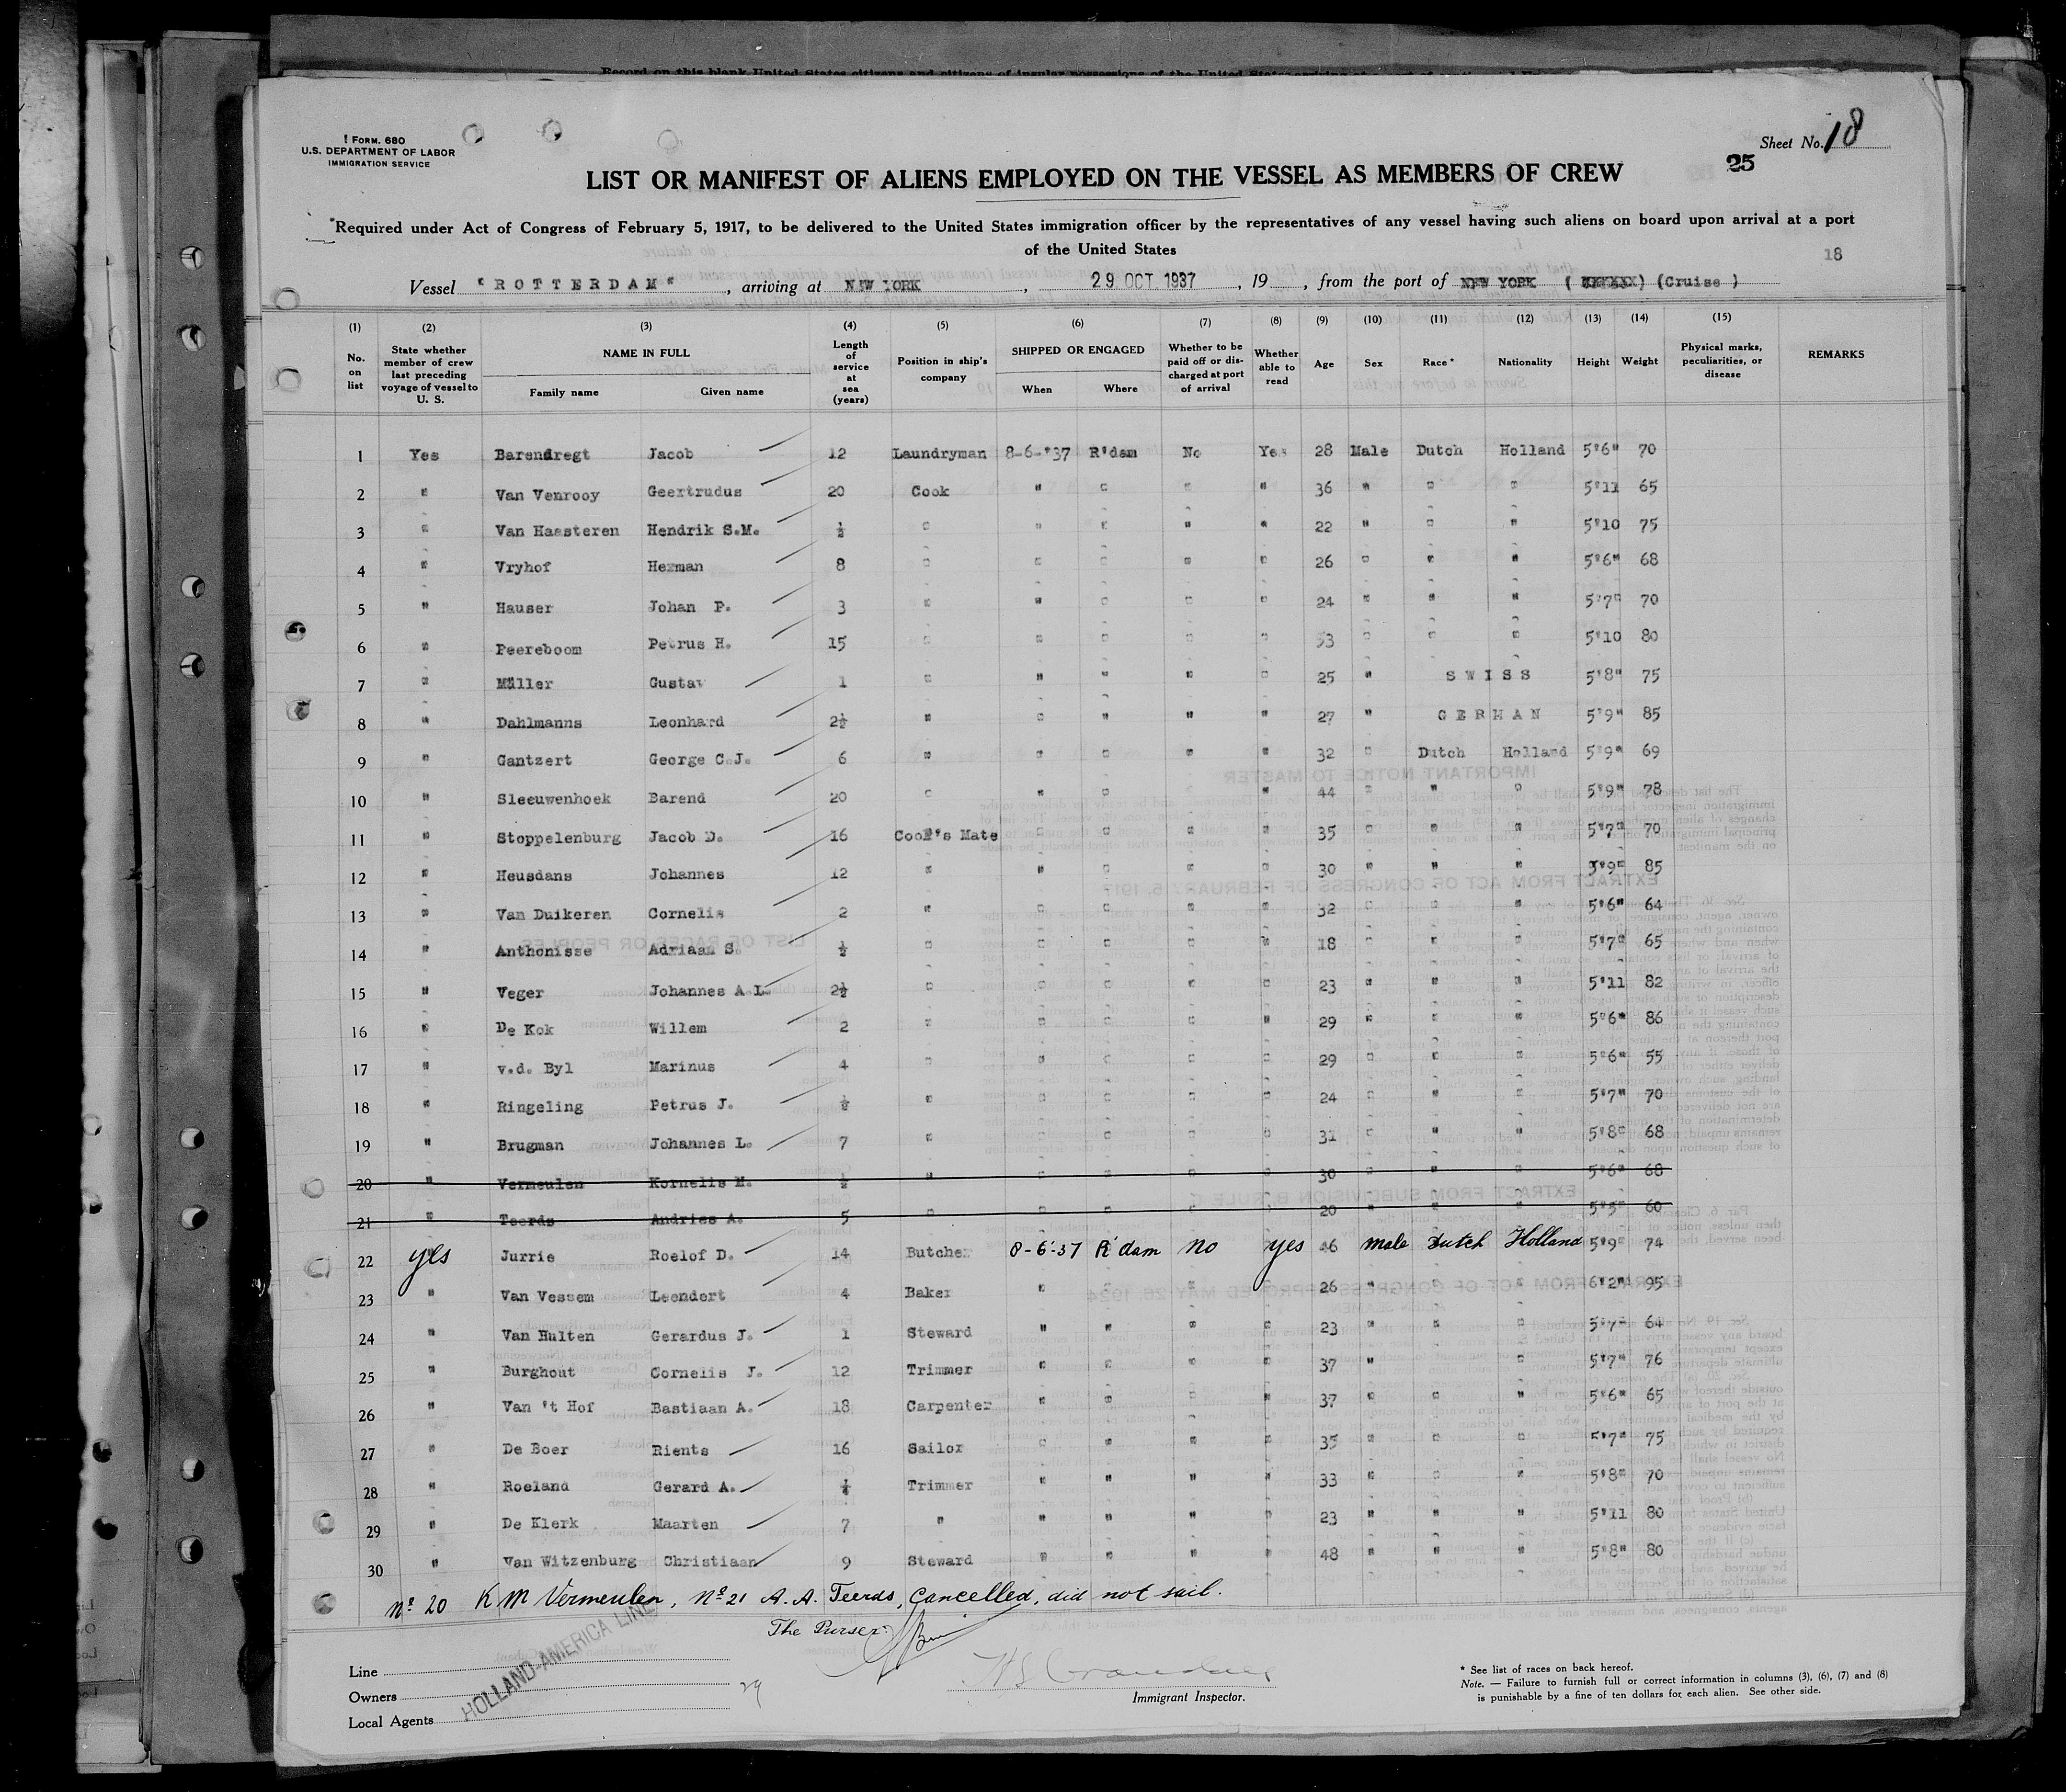 Record on this blank United States citizens and citizens of insular possessions of the United States arriving at a port of
FORM. 680
U.S. DEPARTMENT OF LABOR
IMMIGRATION SERVICE
Sheet No. 18
25
LIST OR MANIFEST OF ALIENS EMPLOYED ON THE VESSEL AS MEMBERS OF CREW
Required under Act of Congress of February 5, 1917, to be delivered to the United States immigration officer by the representatives of any vessel having such aliens on board upon arrival at a port
of the United States
18
Vessel "ROTTERDAM", arriving at NEW YORK, 29 OCT 1937, 19 , from the port of NEW YORK (Cruise)
(1) (2) (3) (4) (5) (6) (7) (8) (9) (10) (11) (12) (13) (14) (15)
No. on list | State whether member of crew last preceding voyage of vessel to U. S. | NAME IN FULL | Length of service at sea (years) | Position in ship's company | SHIPPED OR ENGAGED | Whether to be paid off or discharged at port of arrival | Whether able to read | Age | Sex | Race* | Nationality | Height | Weight | Physical marks, peculiarities, or disease | REMARKS
Family name | Given name | When | Where
1 Yes Barendregt Jacob 12 Laundryman 8-6-'37 R'dam No Yes 28 Male Dutch Holland 5'6" 70
2 " Van Venrooy Geertrudus 20 Cook " " " " 36 " " " 5'11 65
3 " Van Haasteren Hendrik S.M. ½ " " " " " 22 " " " 5'10 75
4 " Vryhof Herman 8 " " " " " 26 " " " 5'6" 68
5 " Hauser Johan P. 3 " " " " " 24 " " " 5'7" 70
6 " Peereboom Petrus H. 15 " " " " " 33 " " " 5'10 80
7 " Müller Gustav 1 " " " " " 25 " SWISS 5'8" 75
8 " Dahlmanns Leonhard 2½ " " " " " 27 " GERMAN 5'9" 85
9 " Gantzert George C.J. 6 " " " " " 32 " Dutch Holland 5'9" 69
10 " Sleeuwenhoek Barend 20 " " " " 44 " " " 5'9" 78
11 " Stoppelenburg Jacob D. 16 Cook's Mate " " " " 35 " " " 5'7" 70
12 " Heusdans Johannes 12 " " " " " 30 " " " 5'9" 85
13 " Van Duikeren Cornelis 2 " " " " " 32 " " " 5'6" 64
14 " Anthonisse Adriaan S. ½ " " " " " 18 " " " 5'7" 65
15 " Veger Johannes A.L. 2½ " " " " " 23 " " " 5'11 82
16 " De Kok Willem 2 " " " " " 29 " " " 5'6" 86
17 " v.d. Byl Marinus 4 " " " " " 29 " " " 5'6" 55
18 " Ringeling Petrus J. ½ " " " " " 24 " " " 5'7" 70
19 " Brugman Johannes L. 7 " " " " " 31 " " " 5'8" 68
20 " Vermeulen Kornelis M. ½ " " " " " 30 " " " 5'6" 68
21 " Teerds Andries A. 5 " " " " " 20 " " " 5'5" 60
22 yes Jurrie Roelof D. 14 Butcher 8-6-'37 R'dam no yes 46 male Dutch Holland 5'9" 74
23 " Van Vessem Leendert 4 Baker " " " 26 " " " 6'2" 95
24 " Van Hulten Gerardus J. 1 Steward " " " " 23 " " " 5'7" 64
25 " Burghout Cornelis J. 12 Trimmer " " " " 37 " " 5'7" 76
26 " Van 't Hof Bastiaan A. 18 Carpenter " " " " 37 " " " 5'6" 65
27 " De Boer Rients 16 Sailor " " " " 35 " " " 5'7" 75
28 " Roeland Gerard A. ½ Trimmer " " " " 33 " " " 5'8" 70
29 " De Klerk Maarten 7 " " " " " 23 " " " 5'11 80
30 " Van Witzenburg Christiaan 9 Steward " " " " 48 " " " 5'8" 80
No 20 K M Vermeulen, No 21 A. A. Teerds, Cancelled, did not sail.
The Purser:
Line
Owners
Local Agents
HOLLAND-AMERICA LINE
29
Immigrant Inspector.
* See list of races on back hereof.
Note. — Failure to furnish full or correct information in columns (3), (6), (7) and (8)
is punishable by a fine of ten dollars for each alien. See other side.